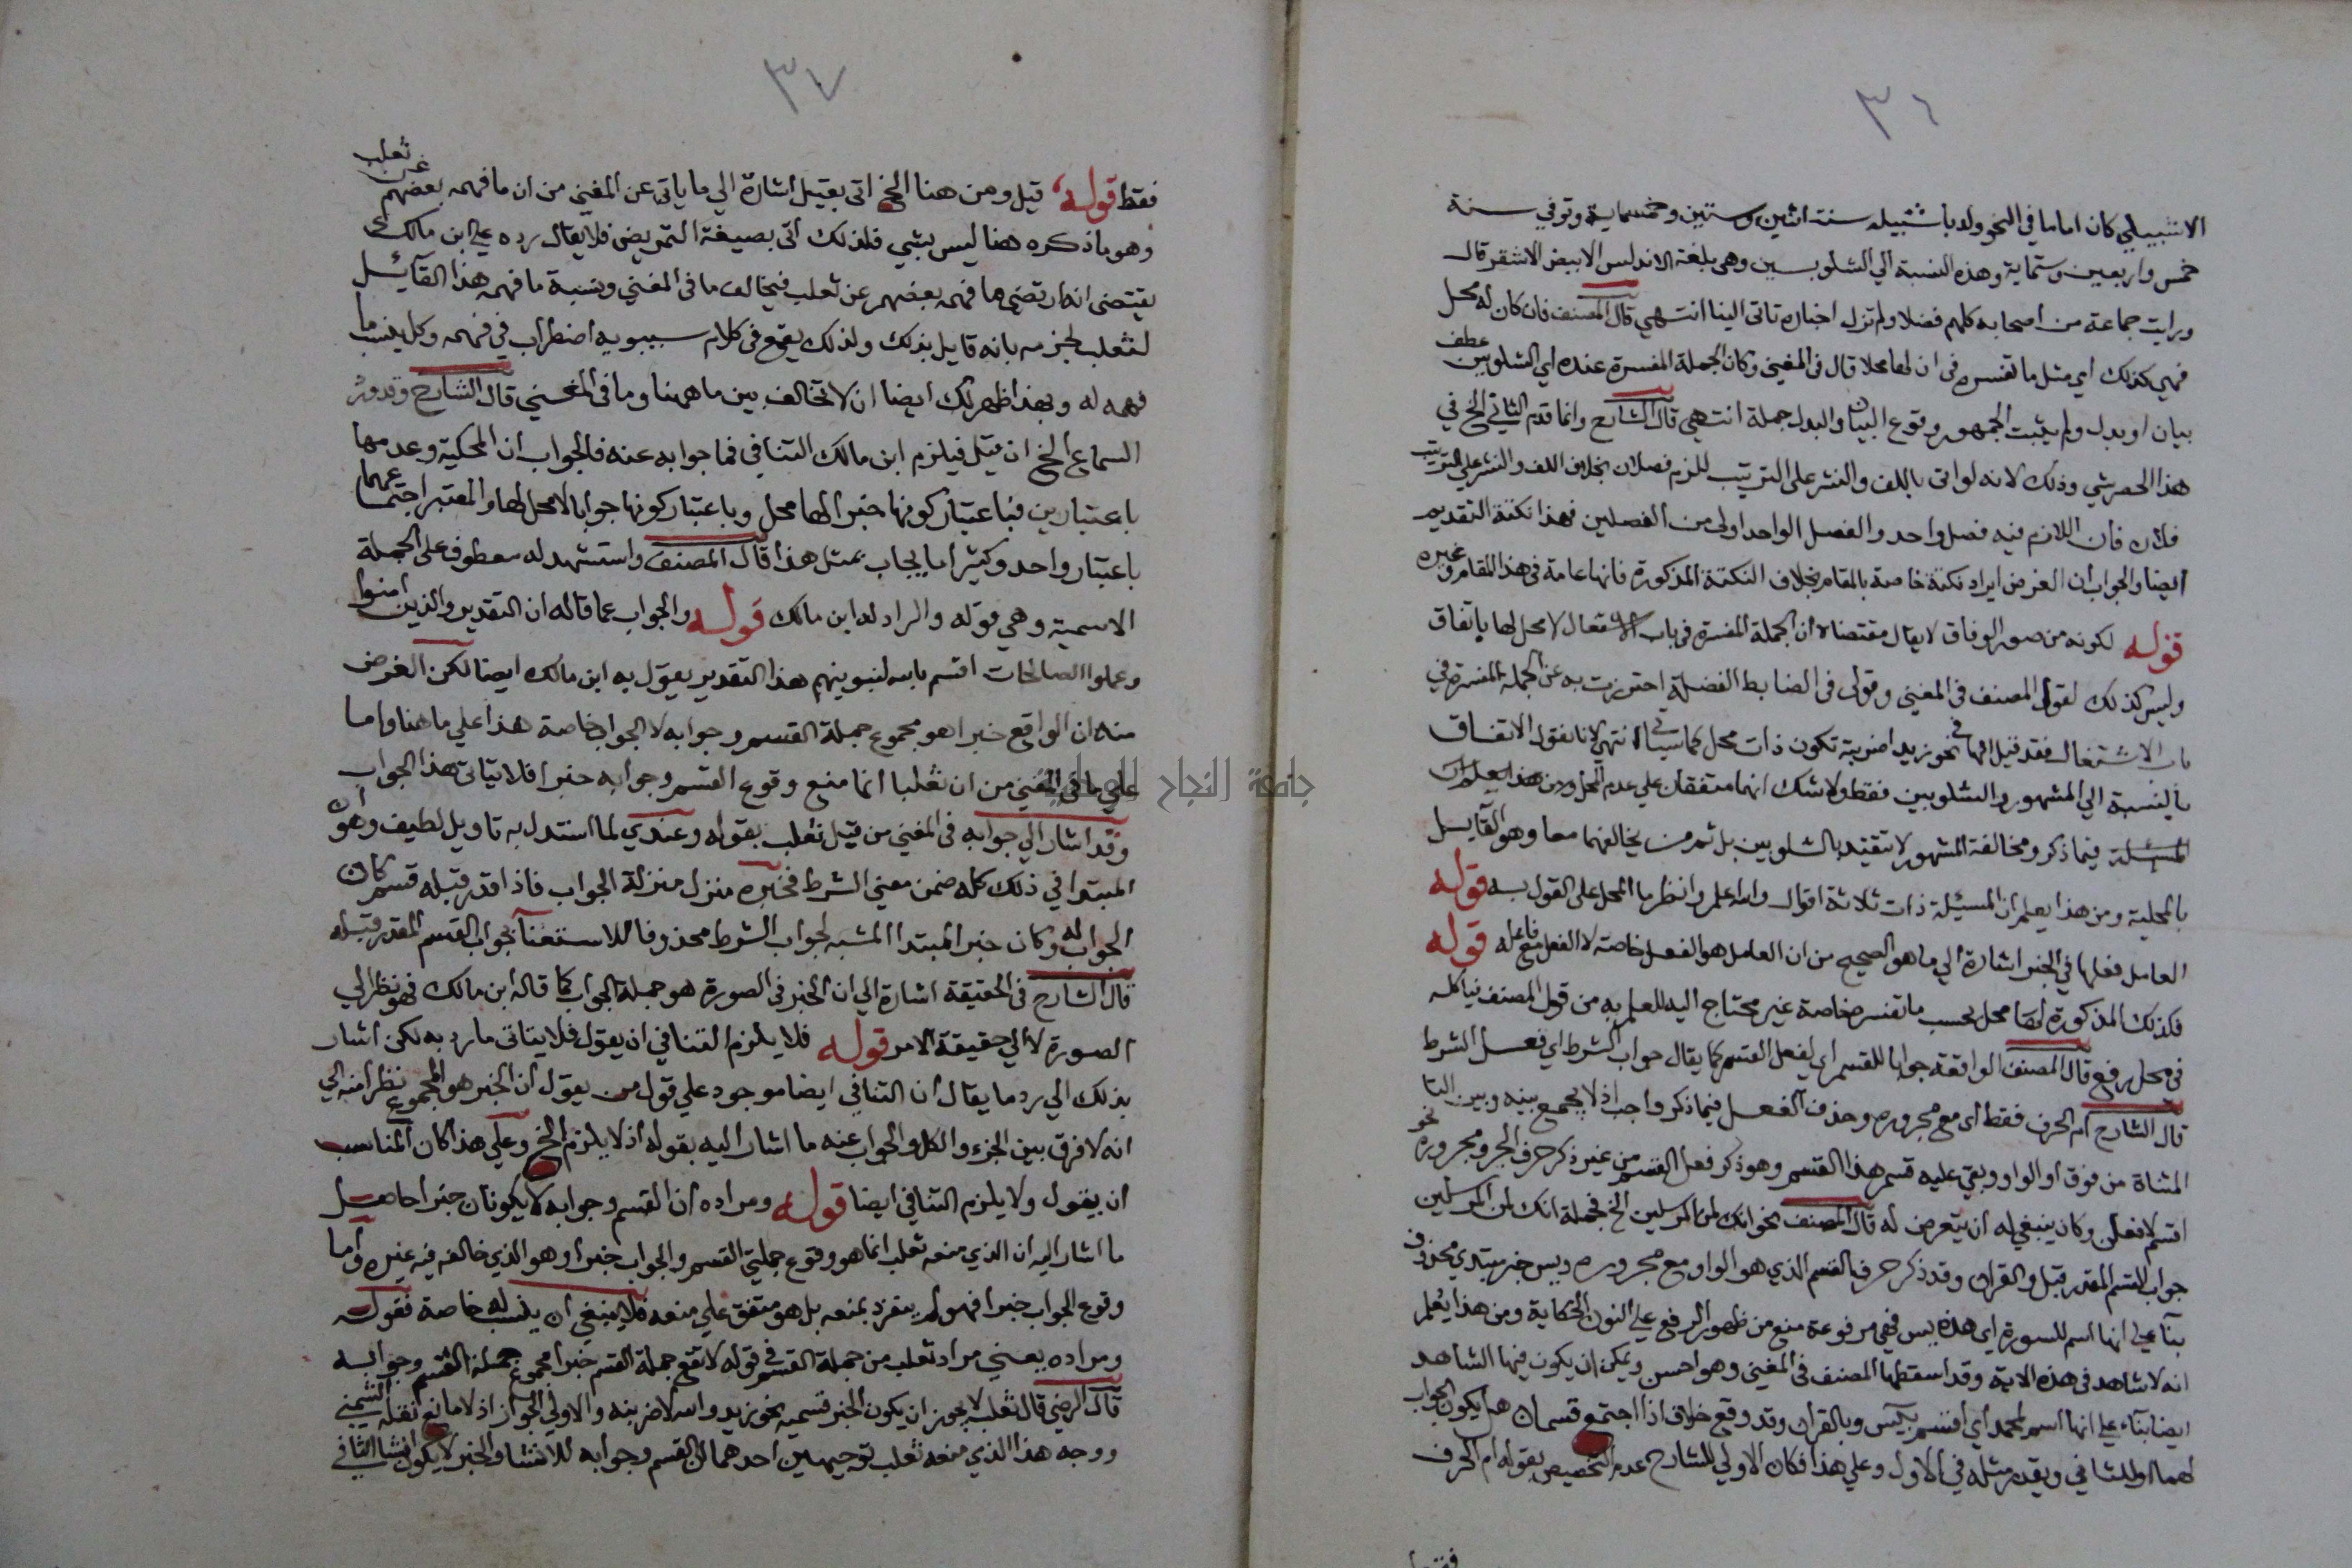 ٣٦
الاشبيلي كان اماما في النحو ولد باشبيليه سنت اثنين وستين وخمسماية وتوفي سنة
خمس واربعين وستماية وهذه النسبة الي الشلوبين وهي بلغة الاندلس الابيض الاشقر قال
ورايت جماعة من اصحابه كلهم فضلا ولم تزل اخباره تاتي الينا انتهي قال المصنف فان كان له محل
فهي كذلك اي مثل ما تفسره في ان لها محلا قال في المغني وكان الجملة المفسرة عنده اي الشلوبين عطف
بيان او بدل ولم يثبت الجمهور وقوع البيان والبدل جملة انتهي قال الشارح وانما قدم الثاني الخ في
هذا الحصر شي وذلك لانه لو اتي باللف والنشر علي الترتيب للزم فصلان بخلاف اللف والنشر علي الترتيب
فلان فان اللازم فيه فصل واحد والفصل الواحد اولي من الفصلين فهذا نكتة التقديم
ايضا والجواب ان الغرض ايراد نكتة خاصة بالمقام بخلاف النكتة المذكورة فانها عامة في هذا المقام وغيره
قوله لكونه من صور الوفاق لا يقال مقتضاه ان الجملة المفسرة في باب الاشتغال لا محل لها باتفاق
وليس كذلك لقول المصنف في المغني وقولي في الضابط الفضلة احترزت به عن الجملة المفسرة في
باب الاشتغال فقد قيل انها في نحو زيدا ضربته تكون ذات محل كما سياتي انتهي لانا نقول الاتفاق
بالنسبة الي المشهور والشلوبين فقط ولا شك انهما متفقان علي عدم المحل ومن هذا يعلم ان
المسئلة فيما ذكر ومخالفة المشهور لا تتقيد بالشلوبين بل ثم من يخالفهما معا وهو القايل
بالمحلية ومن هذا يعلم ان المسئلة ذات ثلاثة اقوال والله اعلم وانظر ما المحل علي القول به قوله
العامل فعلها في الخبر اشارة الي ما هو الصحيح من ان العامل هو الفعل خاصة لا الفعل مع فاعله قوله
فكذلك المذكورة لها محل بحسب ما تفسره خاصة غير محتاج اليه للعلم به من قول المصنف
في محل رفع قال المصنف الواقعة جوابا للقسم اي لفعل القسم كما يقال جواب الشرط اي فعل الشرط
قال الشارح ام الحرف فقط اي مع مجروره وحذف الفعل فيما ذكر واجب اذ لا يجمع بينه وبين التا
المثناة من فوق او الواو وبقي عليه قسم هذا القسم وهو ذكر فعل القسم من غير ذكر حرف الجر ومجروره نحو
اقسم لافعلن وكان ينبغي له ان يتعرض له قال المصنف نحو انك لمن المرسلين الخ فجملة انك لمن المرسلين
جواب القسم المقدر قبل والقران وقد ذكر حرف القسم الذي هو الواو مع مجروره ويس خبر مبتدي محذوف
بنآ علي انها اسم للسورة اي هذه يس فهي مرفوعة منع من ظهور الرفع علي النون الحكاية ومن هذا يعلم
انه لا شاهد في هذه الاية وقد اسقطها المصنف في المغني وهو احسن ويمكن ان يكون فيها الشاهد
ايضا بناء علي انها اسم لمحمد اي اقسم بيس وبالقران وقد وقع خلاف اذا اجتمع قسمان هل يكون الجواب
لهما او للثاني ويقدر مثله في الاول وعلي هذا فكان الاولي للشارح عدم التخصيص بقوله ام الحرف
٣٧
فقط قوله قيل ومن هنا الخ اتي بقيل اشارة الي ما ياتي عن المغني من ان ما فهمه بعضهم عن ثعلب
وهو ما ذكره هنا ليس بشي فلذلك اتي بصيغة التمريض فلا يقال رده علي ابن مالك
يقتضي انه ارتضي ما فهمه بعضهم عن ثعلب فيخالف ما في المغني ونسبة ما فهمه هذا القآئل
لثعلب لجزمه بانه قايل بذلك ولذلك يقع في كلام سيبويه اضطراب في فهمه وكل ينسب ما
فهمه له وبهذا ظهر لك ايضا ان لا تخالف بين ما ههنا وما في المغني قال الشارح وقد ورد
السماع الخ ان قيل فيلزم ابن مالك التنافي فما جوابه عنه فالجواب ان المحكية وعدمها
باعتبارين فباعتبار كونها خبرا لها محل وباعتبار كونها جوابا لا محل لها والمعتبر اجتماعهما
باعتبار واحد وكثيرا ما يجاب بمثل هذا قال المصنف واستشهد له معطوف علي الجملة
الاسمية وهي قوله والراد له ابن مالك قوله والجواب عما قاله ان التقدير والذين امنوا
وعملوا الصالحات اقسم بالله لنبوينهم هذا التقدير يقول به ابن مالك ايضا لكن الغرض
منه ان الواقع خبرا هو مجموع جملة القسم وجوابه لا الجواب خاصة هذا علي ما هنا واما
علي ما في المغني من ان ثعلبا انما منع وقوع القسم وجوابه خبرا فلا يتاتي هذا الجواب
وقد اشار الي جوابه في المغني من قبل ثعلب بقوله وعندي لما استدل به تاويل لطيف وهو ان
المبتدا في ذلك كله ضمن معني الشرط فخبره منزل منزلة الجواب فاذا قدر قبله قسم كان
الجواب له وكان خبر المبتدا المشبه لجواب الشرط محذوفا للاستغنآ بجواب القسم المقدر قبله
قال الشارح في الحقيقة اشارة الي ان الخبر في الصورة هو جملة الجواب كما قاله ابن مالك فهو نظر الي
الصورة لا الي حقيقة الامر قوله فلا يلزم التنافي ان يقول فلا يتاتي ما رد به لكن اشار
بذلك الي رد ما يقال ان التنافي ايضا موجود علي قول من يقول ان الخبر هو المجموع نظرا منه الي
انه لا فرق بين الجزء والكل والجواب عنه ما اشار اليه بقوله اذ لا يلزم الخ وعلي هذا كان المناسب
ان يقول ولا يلزم التنافي ايضا قوله ومراده ان القسم وجوابه لا يكونان خبرا حاصل
ما اشار اليه ان الذي منعه ثعلب انما هو وقوع جملتي القسم والجواب خبرا وهو الذي خالفه فيه غيره واما
وقوع الجواب خبرا فهو لم ينفرد بمنعه بل هو متفق علي منعه فلا ينبغي ان ينسب له خاصة فقوله
ومراده يعني مراد ثعلب من جملة القسم في قوله لا تقع جملة القسم خبرا مجموع جملة القسم وجوابه
قال الرضي قال ثعلب لا يجوز ان يكون الخبر قسمية نحو زيد والله لاضربنه والاولي الجواز اذ لا مانع نقله الشمني
ووجه هذا الذي منعه ثعلب توجيهين احدهما ان القسم وجوابه للانشا والخبر لا يكون انشا الثاني
جامعة النجاح